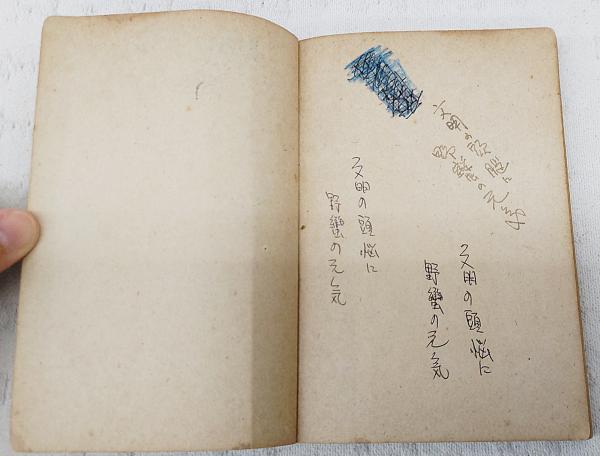 文明の頭脳に
野蠻の元気
文明の頭悩に
野蠻の元気
文明の頭悩に
野蠻の元気